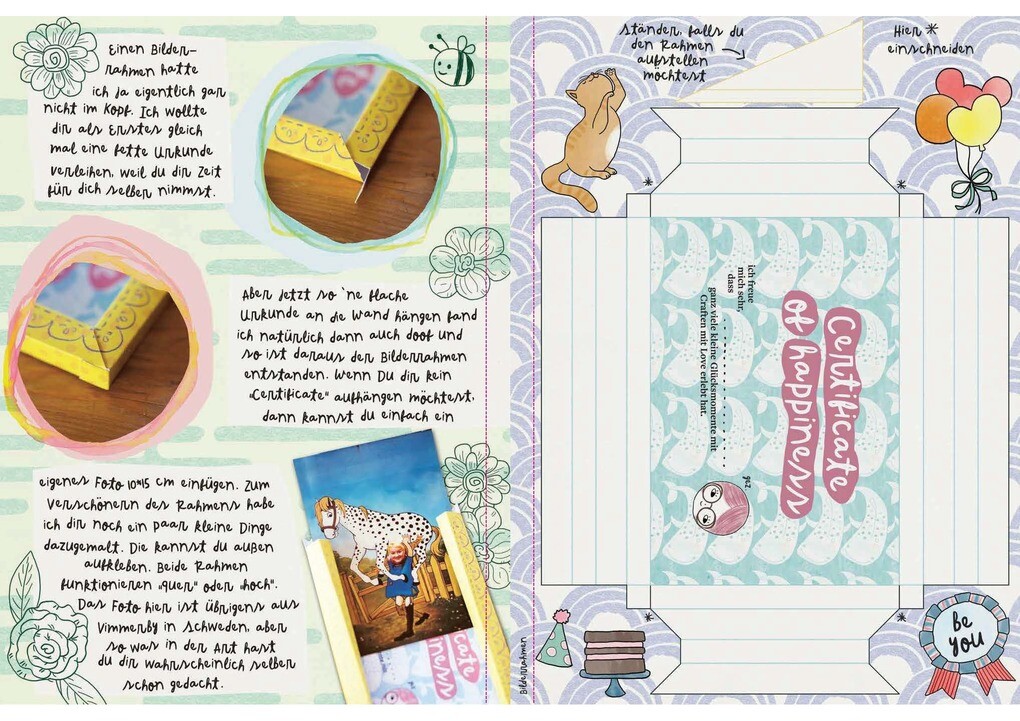 Einen Bilder-
rahmen hatte
ich ja eigentlich gar
nicht im Kopf. Ich wollte
dir als Erstes gleich
mal eine fette Urkunde
verleihen, weil du dir Zeit
für dich selber nimmst.
Aber jetzt so 'ne flache
Urkunde an die Wand hängen fand
ich natürlich dann auch doof und
so ist daraus der Bilderrahmen
entstanden. Wenn Du dir kein
„Certificate“ aufhängen möchtest,
dann kannst du einfach ein
eigenes Foto 10*15 cm einfügen. Zum
Verschönern des Rahmens habe
ich dir noch ein paar kleine Dinge
dazugemalt. Die kannst du außen
aufkleben. Beide Rahmen
funktionieren „quer“ oder „hoch“.
Das Foto hier ist übrigens aus
Vimmerby in Schweden, aber
so was in der Art hast
du dir wahrscheinlich selber
schon gedacht.
cate
ness
Ständer, falls du
den Rahmen
aufstellen
möchtest
Hier *
einschneiden
*
*
Certificate
of happiness
ich freue
mich sehr,
dass
ganz viele kleine Glücksmomente mit
Craften mit Love erlebt hat.
gez
*
*
Bilderrahmen
be
you